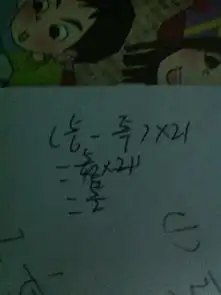 (5/6 - 5/7) × 21
= 5/42 × 21
= 5/2
(1)